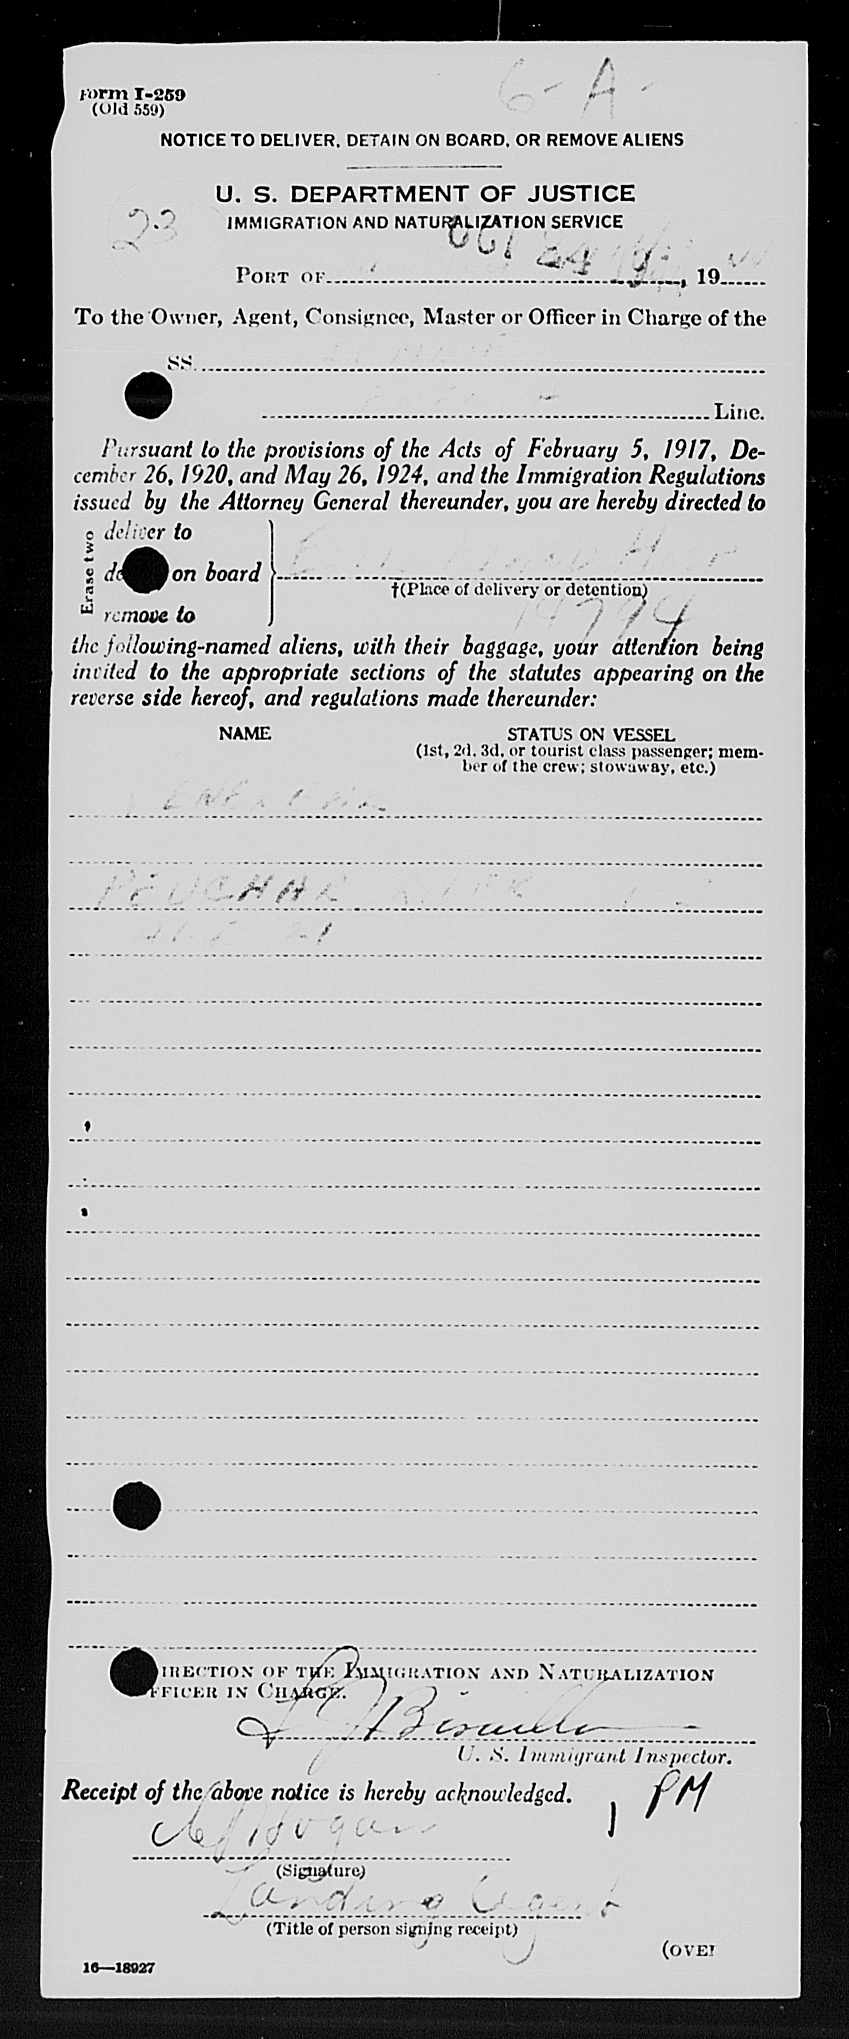 Form I-259
(Old 559)
6 - A -
NOTICE TO DELIVER, DETAIN ON BOARD, OR REMOVE ALIENS
U. S. DEPARTMENT OF JUSTICE
IMMIGRATION AND NATURALIZATION SERVICE
23
OCT 24
PORT OF , 19
To the Owner, Agent, Consignee, Master or Officer in Charge of the
SS.
Line.
Pursuant to the provisions of the Acts of February 5, 1917, De-
cember 26, 1920, and May 26, 1924, and the Immigration Regulations
issued by the Attorney General thereunder, you are hereby directed to
Erase two
deliver to
on board
†(Place of delivery or detention)
remove to
the following-named aliens, with their baggage, your attention being
invited to the appropriate sections of the statutes appearing on the
reverse side hereof, and regulations made thereunder:
NAME
STATUS ON VESSEL
(1st, 2d, 3d, or tourist class passenger; mem-
ber of the crew; stowaway, etc.)
AGE 21
DIRECTION OF THE IMMIGRATION AND NATURALIZATION
OFFICER IN CHARGE.
U. S. Immigrant Inspector.
Receipt of the above notice is hereby acknowledged.
1 PM
Hogan
(Signature)
Landing Agent
(Title of person signing receipt)
(OVER
16—18927